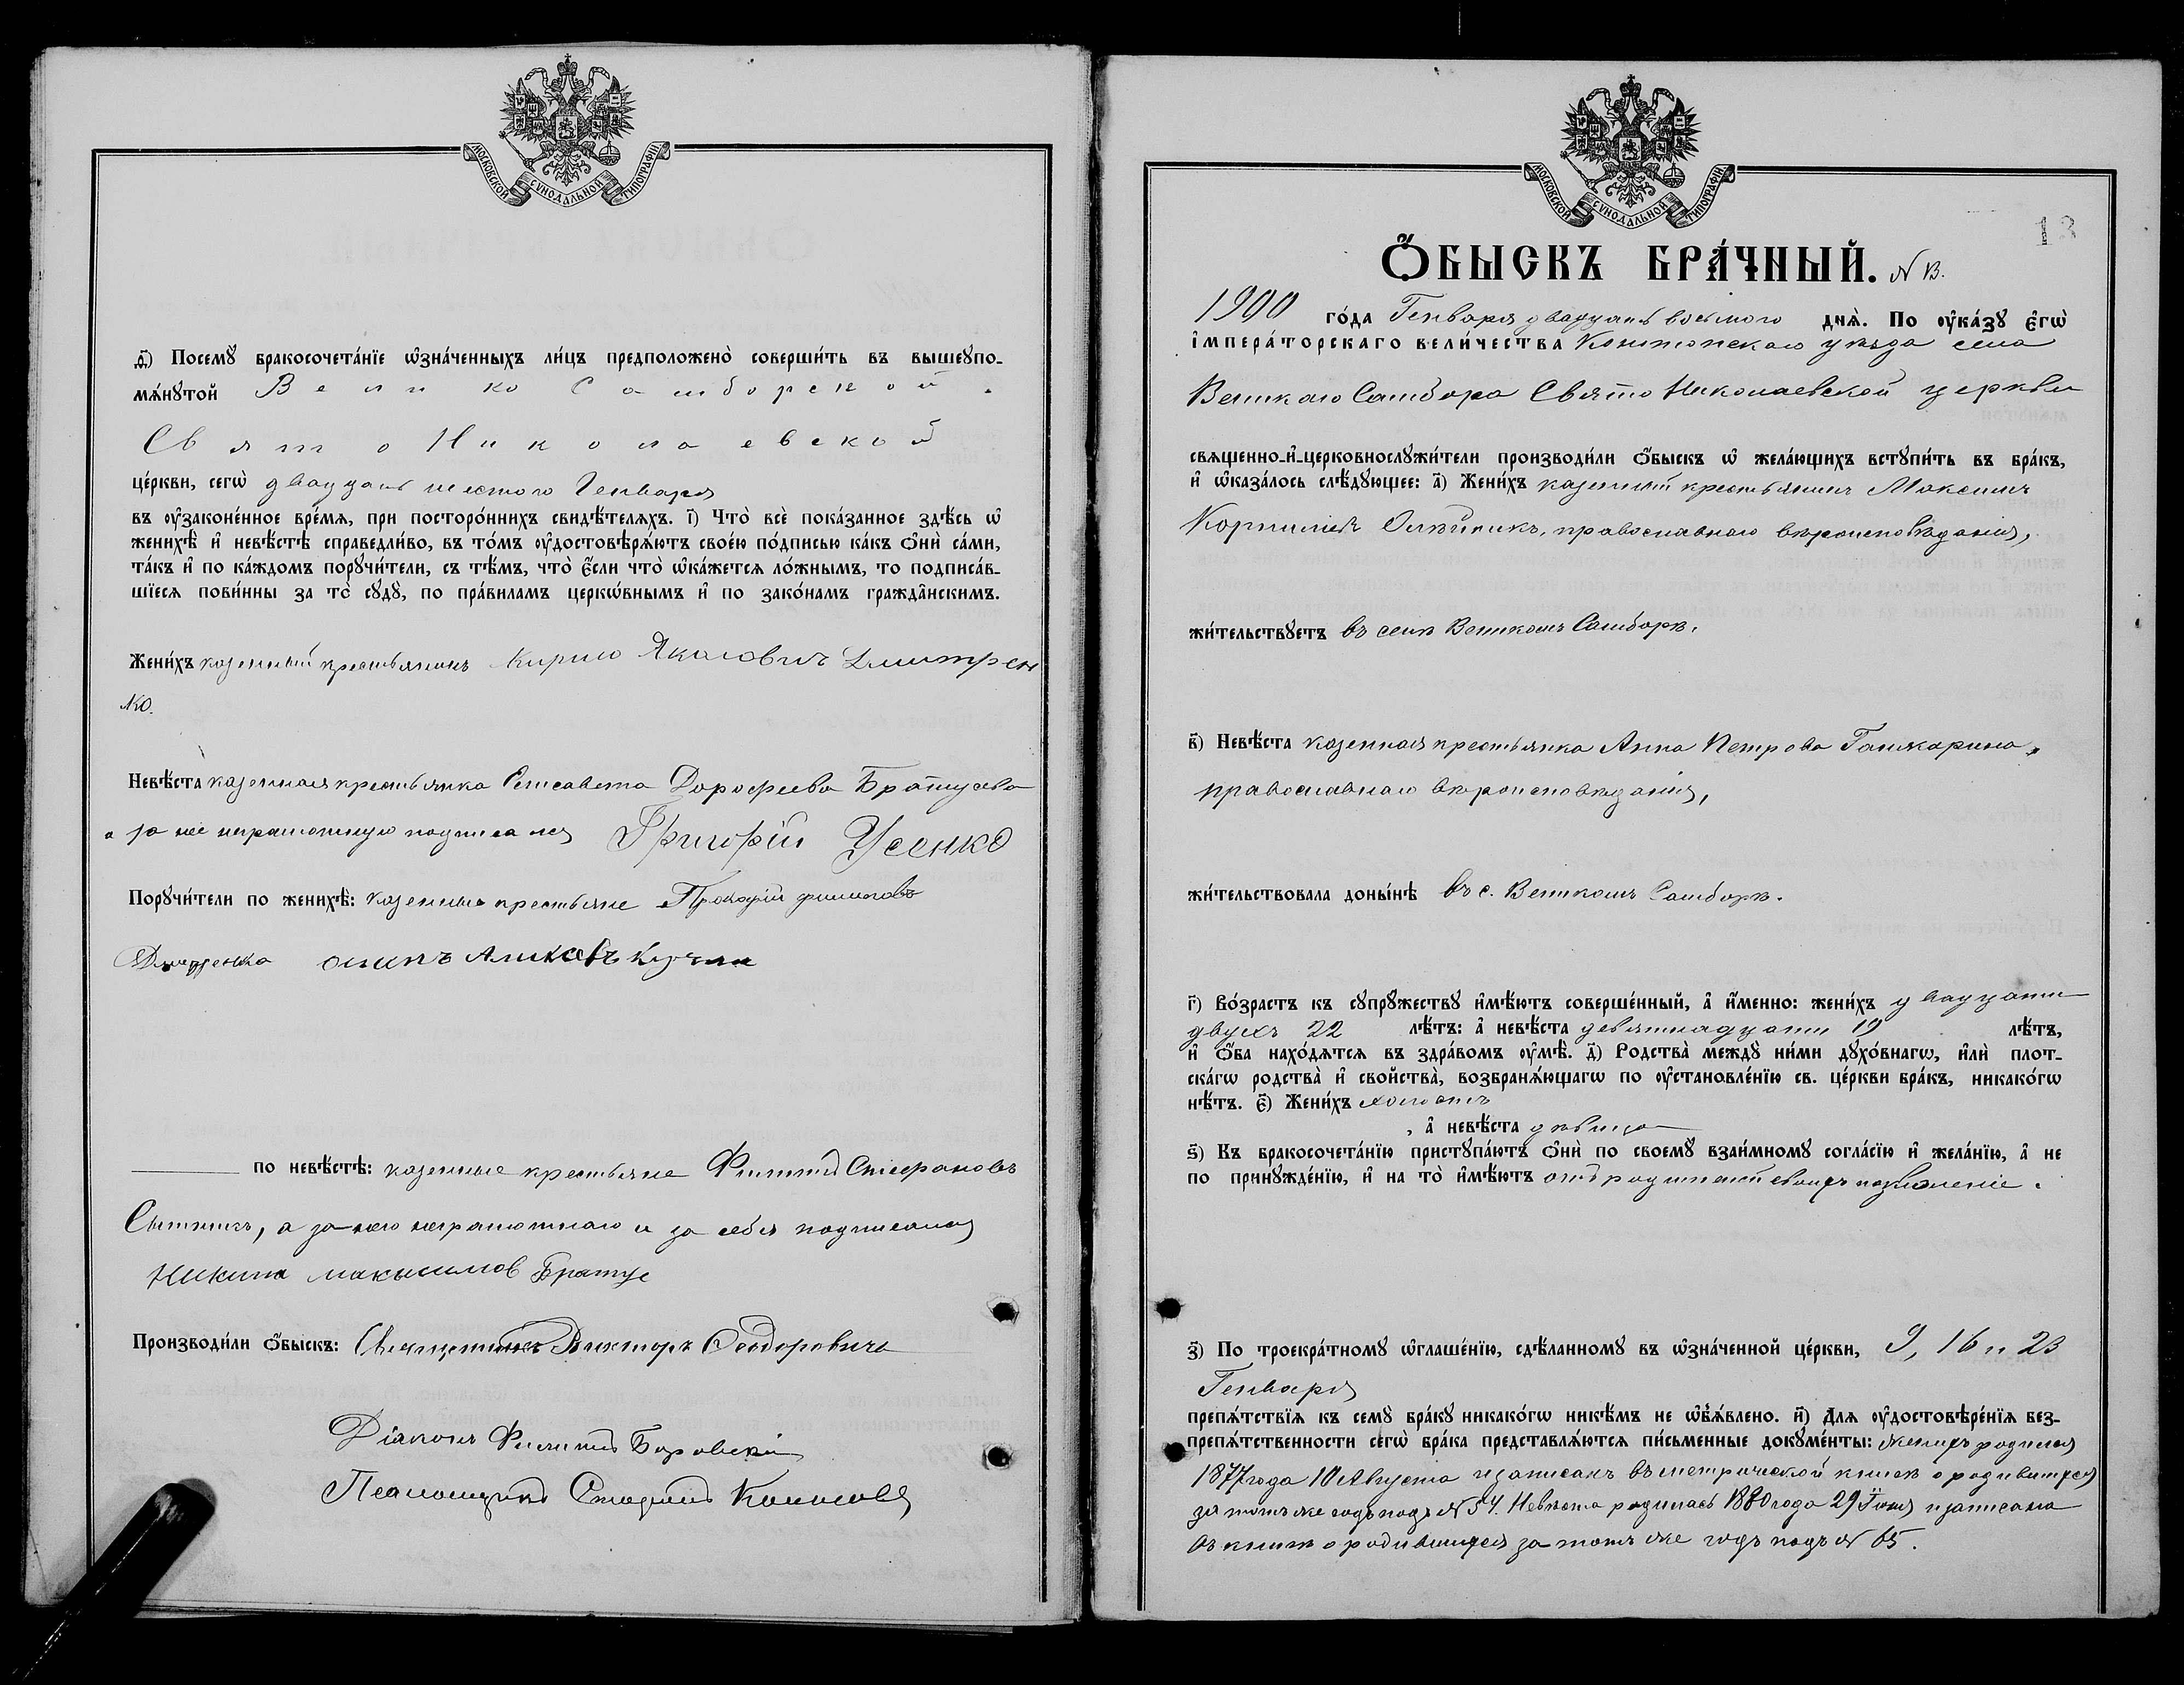 МОСКОВСКОЙ СѴНОДАЛЬНОЙ ТИПОГРАФІИ
д҃) Посемꙋ̀ бракосочета́нїе ѡ҆зна́ченныхъ ли́цъ предположено̀ соверши́ть въ вышеꙋпо-
мѧ́нꙋтой Велико Самборской
Свято Николаевской
це́ркви, сегѡ̀ двадцать шестого Генваря
въ ᲂу҆законе́нное вре́мѧ, при посторо́ннихъ свидѣ́телѧхъ. і҃) Что̀ всѐ пока́занное здѣ́сь ѡ҆
женихѣ̀ и҆ невѣ́стѣ справедли́во, въ то́мъ ᲂу҆достовѣрѧ́ютъ свое́ю по́дписью ка́къ ѻ҆нѝ са́ми,
та́къ и҆ по ка́ждомъ порꙋчи́тели, съ тѣ́мъ, что̀ є҆́сли что̀ ѡ҆ка́жетсѧ ло́жнымъ, то подписа́в-
шїесѧ пови́нны за то̀ сꙋдꙋ̀, по пра́виламъ церкѡ́внымъ и҆ по зако́намъ гражда̂нскимъ.
Жени́хъ казенный крестьянинъ Кирило Яковичъ Дмитрен
ко.
Невѣ́ста казенная крестьянка Елисавета Дорофеева Братусева
а за нее неграмотную подписался Григорій Усенко
Порꙋчи́тели по женихѣ̀: казенные крестьяне Прокофій филиповъ
Дмитренко осипъ
по невѣ́стѣ: казенные крестьяне Филиппъ Стефановъ
Сытникъ, а за него неграмотнаго и за себя подписался
Никита макысимов Братус
Производи́ли ѻ҆́быскъ: Священникъ Викторъ Ѳеодоровичъ
Діаконъ Филиппъ Боровскій
Псаломщикъ
МОСКОВСКОЙ СѴНОДАЛЬНОЙ ТИПОГРАФІИ
13
Ѻ҆́БЫСКЪ БРА́ЧНЫЙ. N 13.
1900 го́да Генваря двадцать восьмого днѧ̀. По ᲂу҆ка́зꙋ є҆гѡ̀
і҆мпера́торскаго вели́чества Конотопскаго уѣзда села
Великаго Самбора Свято Николаевской церкви
свѧщенно-и҆-церковнослꙋжи́тели производи́ли ѻ҆́быскъ ѡ҆ жела́ющихъ встꙋпи́ть въ бра́къ,
и҆ ѡ҆каза́лось слѣ́дꙋющее: а҃) Жени́хъ казенный крестьянинъ Максимъ
Корнилій Олѣйникъ, православнаго вѣроисповѣданія,
жи́тельствꙋетъ въ селѣ Великомъ Самборѣ.
в҃) Невѣ́ста казенная крестьянка Анна Петрова
православнаго вѣроисповѣданія,
жи́тельствовала доны́нѣ въ с. Великомъ Самборѣ.
г҃) Во́зрастъ къ сꙋпрꙋ́жествꙋ и҆мѣ́ютъ соверше́нный, а҆ и҆́менно: жени́хъ двадцати
двухъ 22 лѣ́тъ: а҆ невѣ́ста девятнадцати 19 лѣ́тъ,
и҆ ѻ҆́ба нахо́дѧтсѧ въ здра́вомъ ᲂу҆мѣ̀. д҃) Родства̀ междꙋ̀ ни́ми дꙋхо́внагѡ, и҆лѝ плот-
ска́гѡ родства̀ и҆ свойства̀, возбранѧ́ющагѡ по ᲂу҆становле́нїю св. це́ркви бра́къ, никако́гѡ
нѣ́тъ. є҃) Жени́хъ холостъ
, а҆ невѣ́ста дѣвица
ѕ҃) Къ бракосочета́нїю пристꙋпа́ютъ ѻ҆нѝ по своемꙋ̀ взаи́мномꙋ согла́сїю и҆ жела́нїю, а҆ не
по принꙋжде́нїю, и҆ на то̀ и҆мѣ́ютъ отъ родителей своихъ позволеніе.
з҃) По троекра́тномꙋ ѡ҆глаше́нїю, сдѣ́ланномꙋ въ ѡ҆зна́ченной це́ркви, 9, 16 и 23
Генваря
препѧ́тствїѧ къ семꙋ̀ бра́кꙋ никако́гѡ никѣ́мъ не ѡ҆б̾ѧ́влено. и҃) Длѧ ᲂу҆достовѣре́нїѧ без-
препѧ́тственности сегѡ̀ бра́ка представлѧ́ютсѧ пи́сьменные докꙋме́нты: женихъ родился
1877 года 10 Августа и записанъ въ метрической книгѣ о родившихся
за тотъ же годъ подъ N 54. Невѣста родилась 1880 года 29 и записана
въ книгѣ о родившихся за тотъ же годъ подъ N 65.